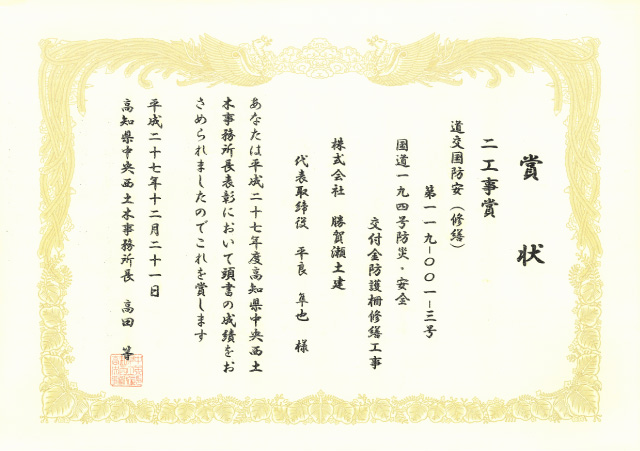 賞状
二工事賞
道交国防安(修繕)
第一一九-〇〇一-三号
国道一九四号防災・安全
交付金防護柵修繕工事
株式会社 勝賀瀬土建
代表取締役 平良 隼也 様
あなたは平成二十七年度高知県中央西土
木事務所長表彰において頭書の成績をお
さめられましたのでこれを賞します
平成二十七年十二月二十一日
高知県中央西土木事務所長 高田 等